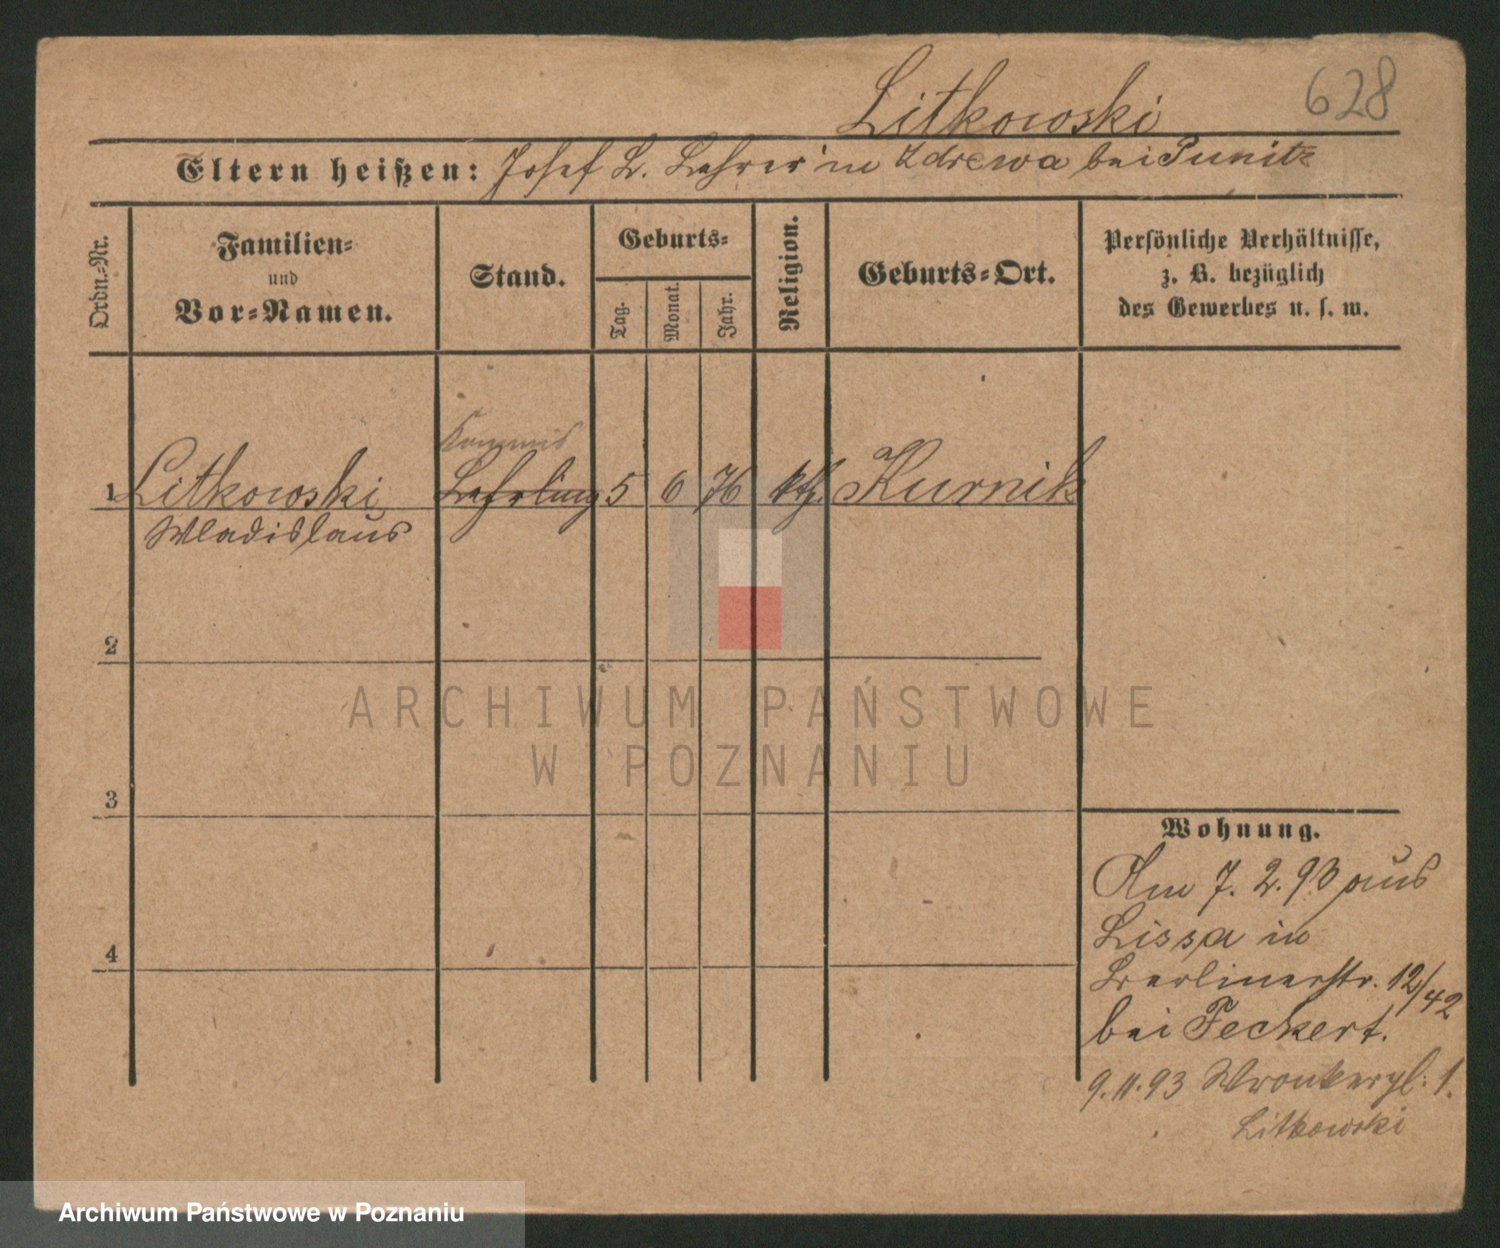 628
Litkowski
Eltern heißen: Josef L. Lehrer in Zdrewa bei Punitz
Ordn.-Nr.
Familien-
und
Vor-Namen.
Stand.
Geburts-
Tag.
Monat.
Jahr.
Religion.
Geburts-Ort.
Persönliche Verhältnisse,
z. B. bezüglich
des Gewerbes u. s. w.
Kommis
1 Litkowski Lehrling 5 6 76 kth. Kurnik
Wladislaus
2
3
4
Wohnung.
Am 7. 2. 93 aus
Lissa in
Berlinerstr. 12/42
bei Feckert.
9.11.93 Wronkerpl. 1.
Litkowski
ARCHIWUM PAŃSTWOWE
W POZNANIU
Archiwum Państwowe w Poznaniu